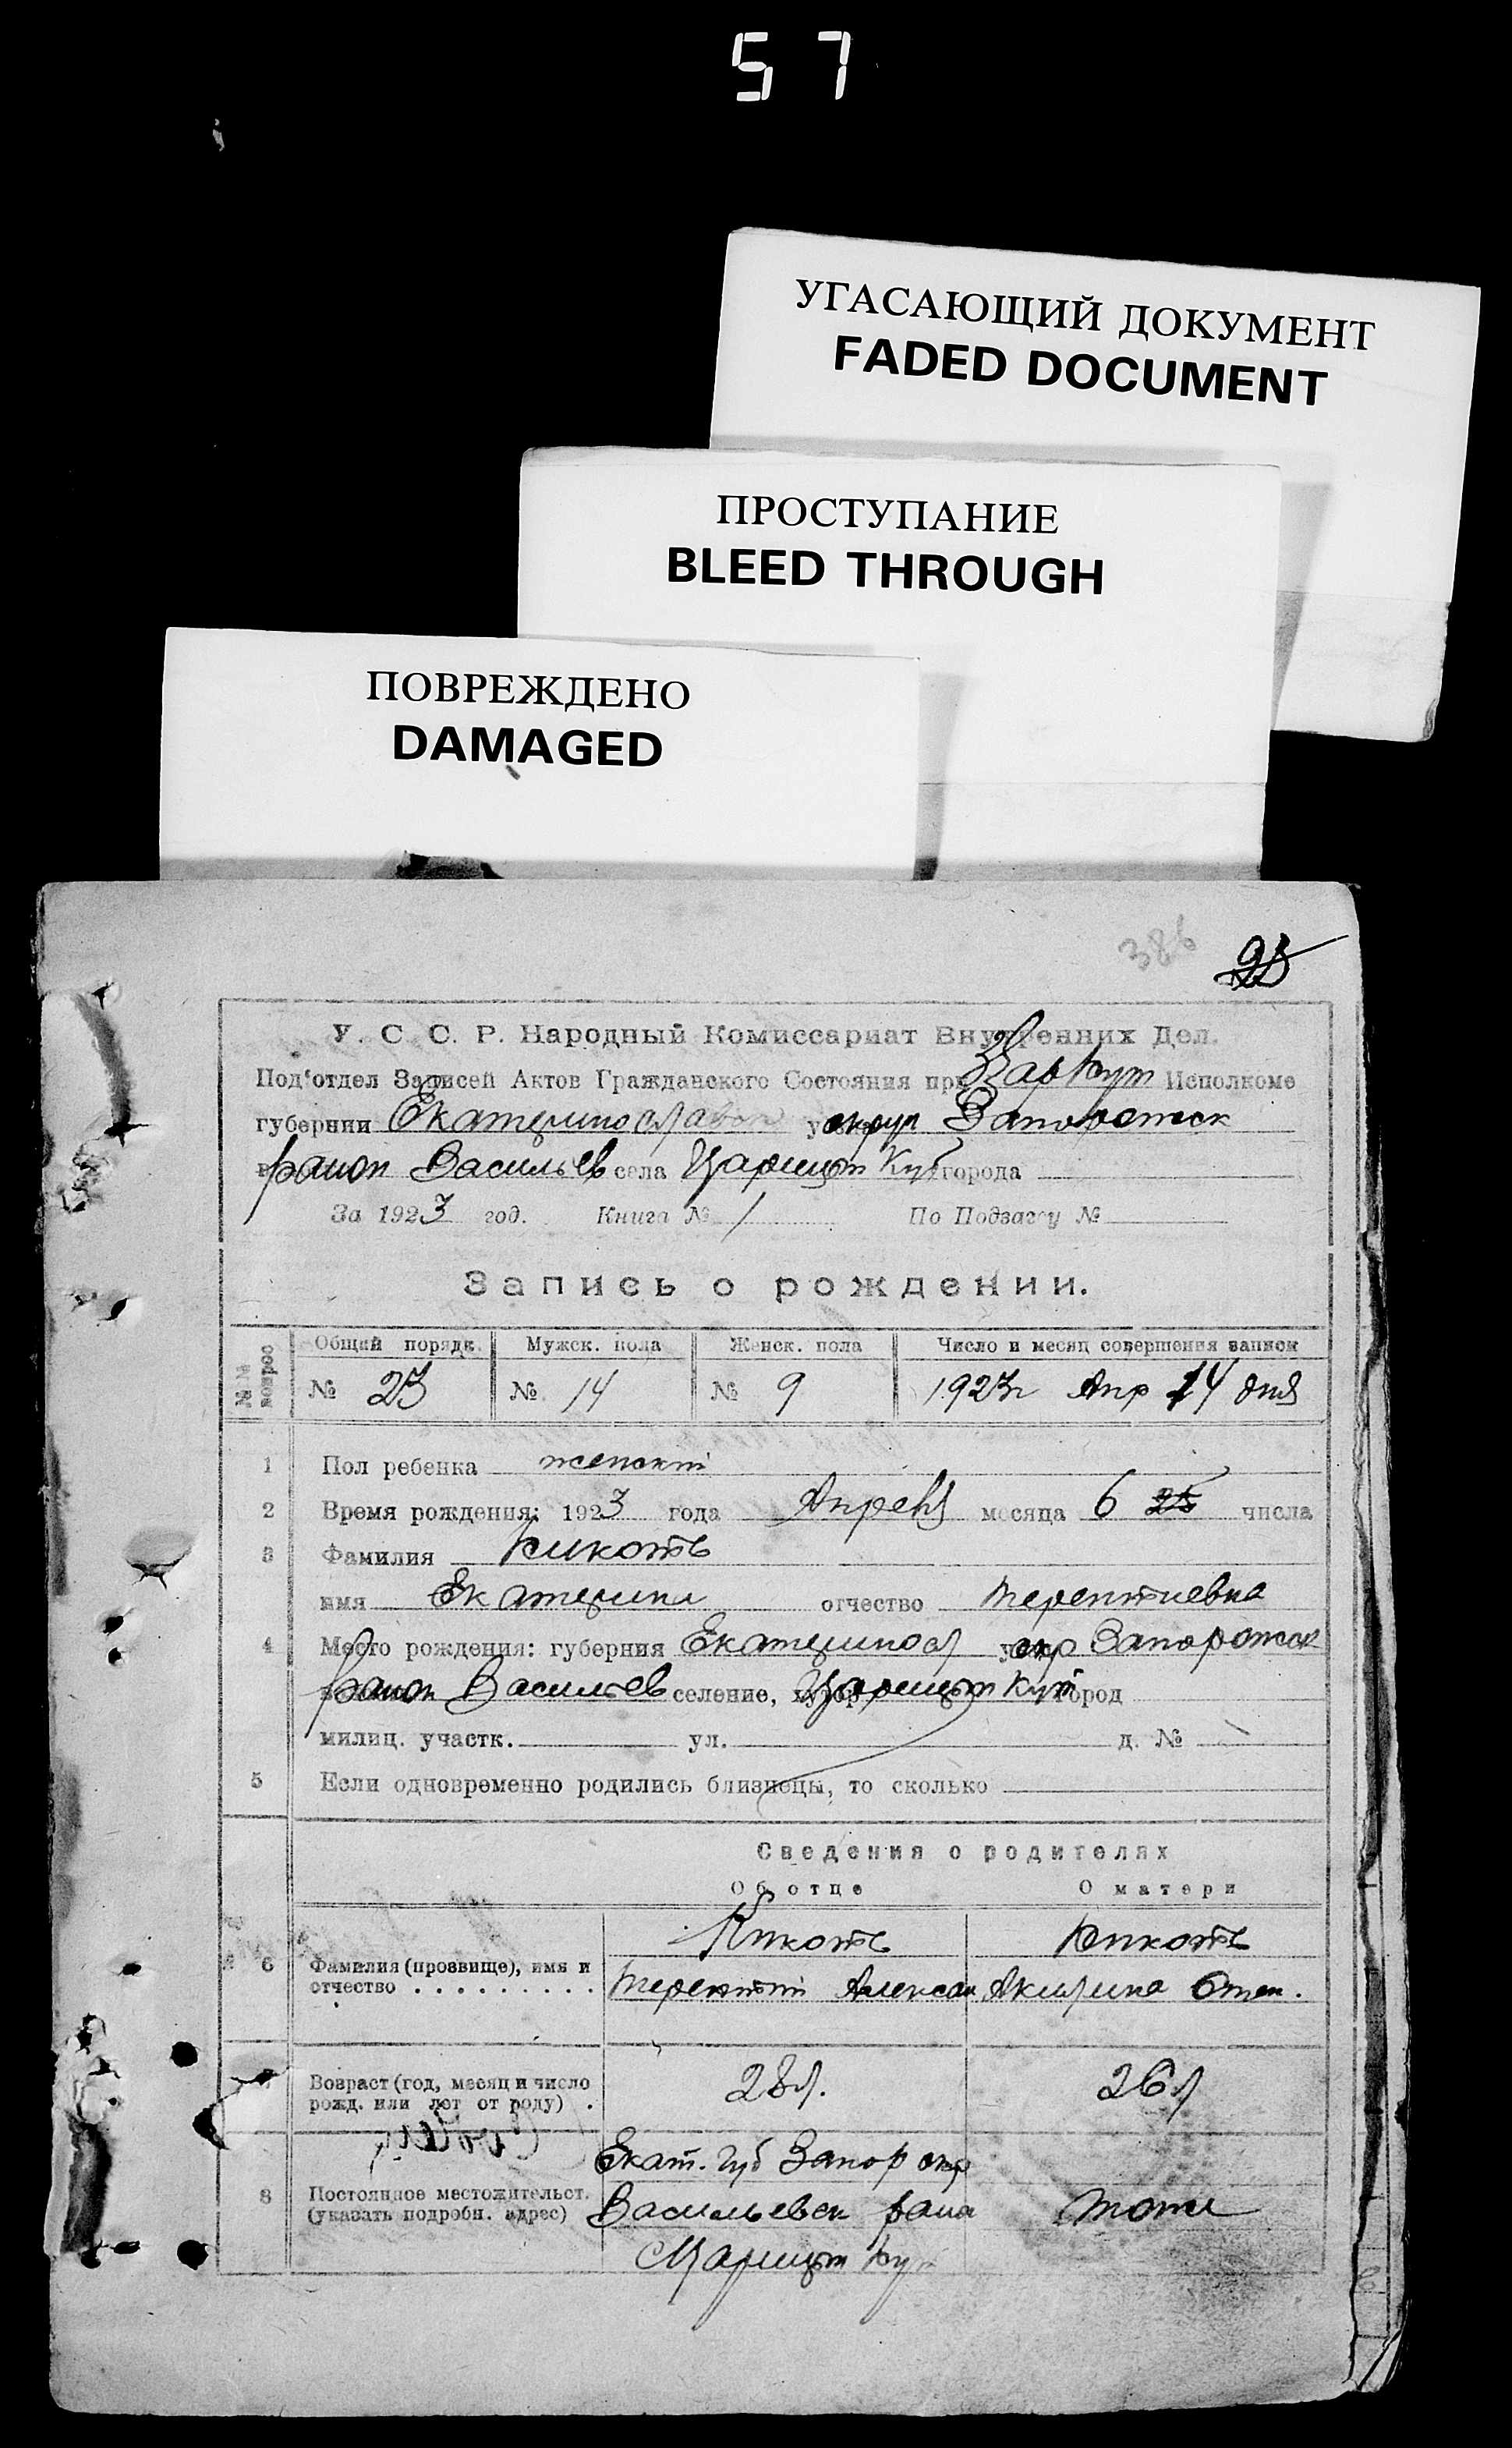 57
УГАСАЮЩИЙ ДОКУМЕНТ
FADED DOCUMENT
ПРОСТУПАНИЕ
BLEED THROUGH
ПОВРЕЖДЕНО
DAMAGED
386 25
У. С. С. Р. Народный Комиссариат Внутренних Дел.
Под'отдел Записей Актов Гражданского Состояния при Исполкоме
губернии Екатеринослав округ Запорожск
район Васильев села Царицын Кут города
За 1923 год. Книга № 1 По Подзагсу №
Запись о рождении.
№№ вопрос Общий порядк. Мужск. пола Женск. пола Число и месяц совершения записи
№ 23 № 14 № 9 1923г Апр 14 дня
1 Пол ребенка женский
2 Время рождения: 1923 года Апреля месяца 6 25 числа
3 Фамилия Кикоть
имя Екатерина отчество Терентиевна
4 Место рождения: губерния Екатериносл окр Запорожск
район Васильев селение, хутор Царицын Кут город
милиц. участк. ул. д. №
5 Если одновременно родились близнецы, то сколько
Сведения о родителях
Об отце О матери
Кикоть Кикоть
6 Фамилия (прозвище), имя и
отчество Терентий Алексан Акилина Степ.
7 Возраст (год, месяц и число 28 л. 26 л
рожд. или лет от роду)
Екат. губ Запор окр
8 Постоянное местожительст. Васильевск райо тоже
(указать подробн. адрес)
Царицын Кут